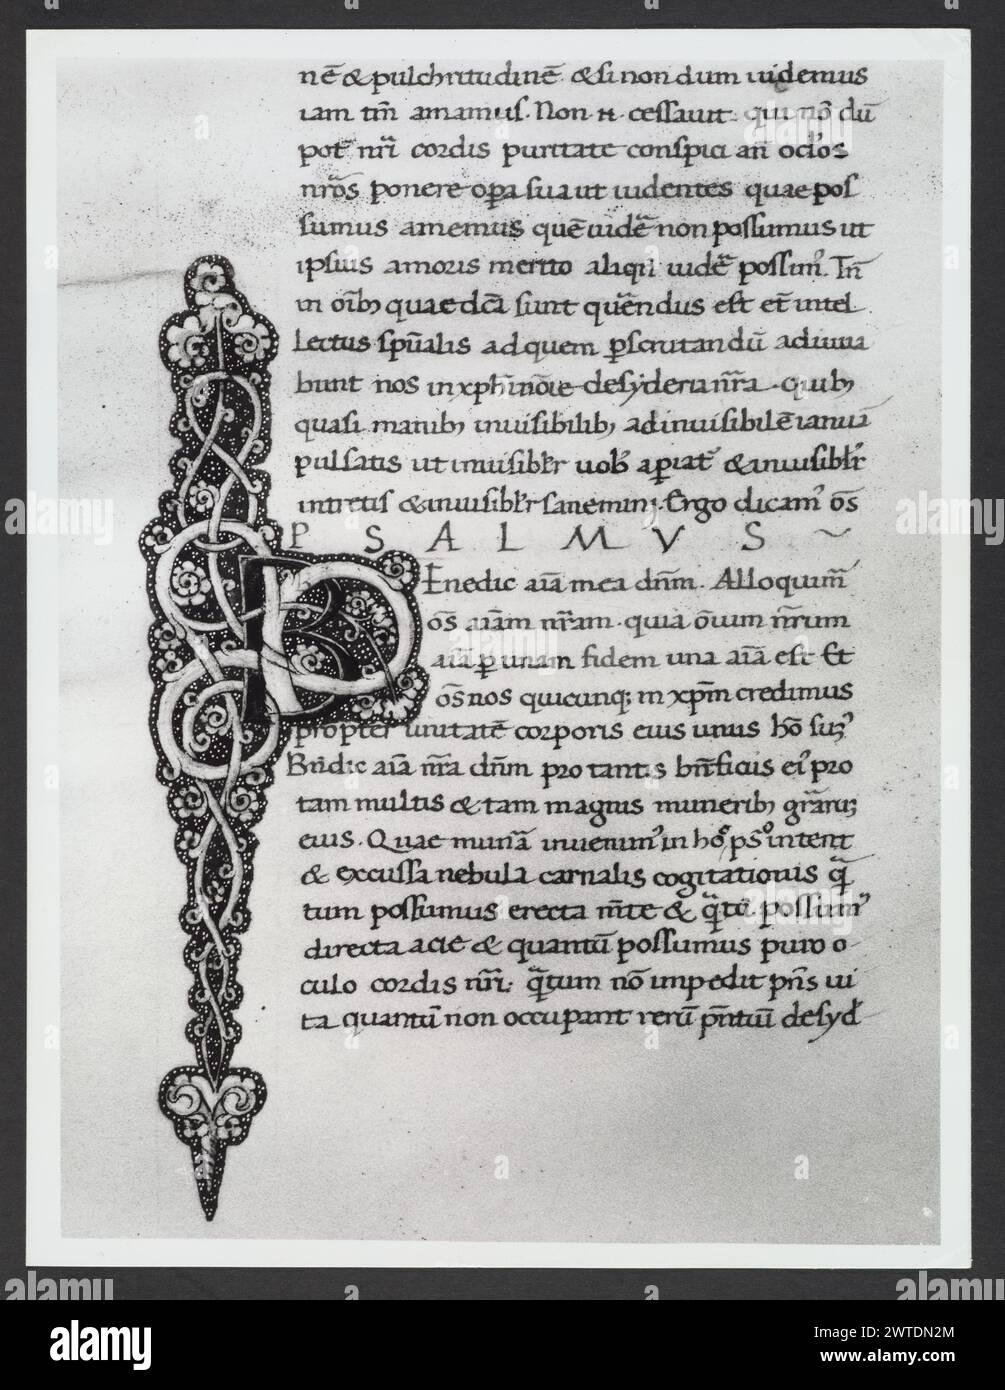 nē & pulchritudinē. & si non dum uidemus
iam tm̄ amamus. Non cessauit qui nō dū
pot nr̄i cordis puritate conspici an oclōs
nrōs ponere opa sua ut uidentes quae pos
sumus amemus quē uidē non possumus ut
ipsius amoris merito aliqn uidē possim'. In
in oīb quae dc̄a sunt quēndus est et intel
lectus spūalis ad quem pscrutandū adiuua
bunt nos in xp̄i nōie desyderia nr̄a. quib
quasi manib inuisibilib ad inuisibilē ianuā
pulsatis ut inuisiblr uob apiat & inuisiblr
intretis & inuisiblr sanemini. Ergo dicam' ōs
PSALMVS ~
Enedic aīa mea dn̄m. Alloquim̄
ōs aīam nr̄am. quia ōium nr̄rum
aīa p unam fidem una aīa est Et
ōs nos quicunq; in xpm̄ credimus
propter unitatē corporis eius unus hō
Bn̄dic aīa nr̄a dn̄m pro tantis bn̄ficiis ei' pro
tam multis & tam magnis munerib gr̄aru;
eius. Quae inuenim' in intenti
& excussa nebula carnalis cogitationis q̄
tum possumus erecta m̄te & q̄tū possum'
directa acie & quantū possumus puro o-
culo cordis nr̄i. q̄tum nō impedit pn̄s ui
ta quantū non occupant rerū pn̄tiū desyd
alamy
a
alamy
Image ID: 2WTDN2M
www.alamy.com